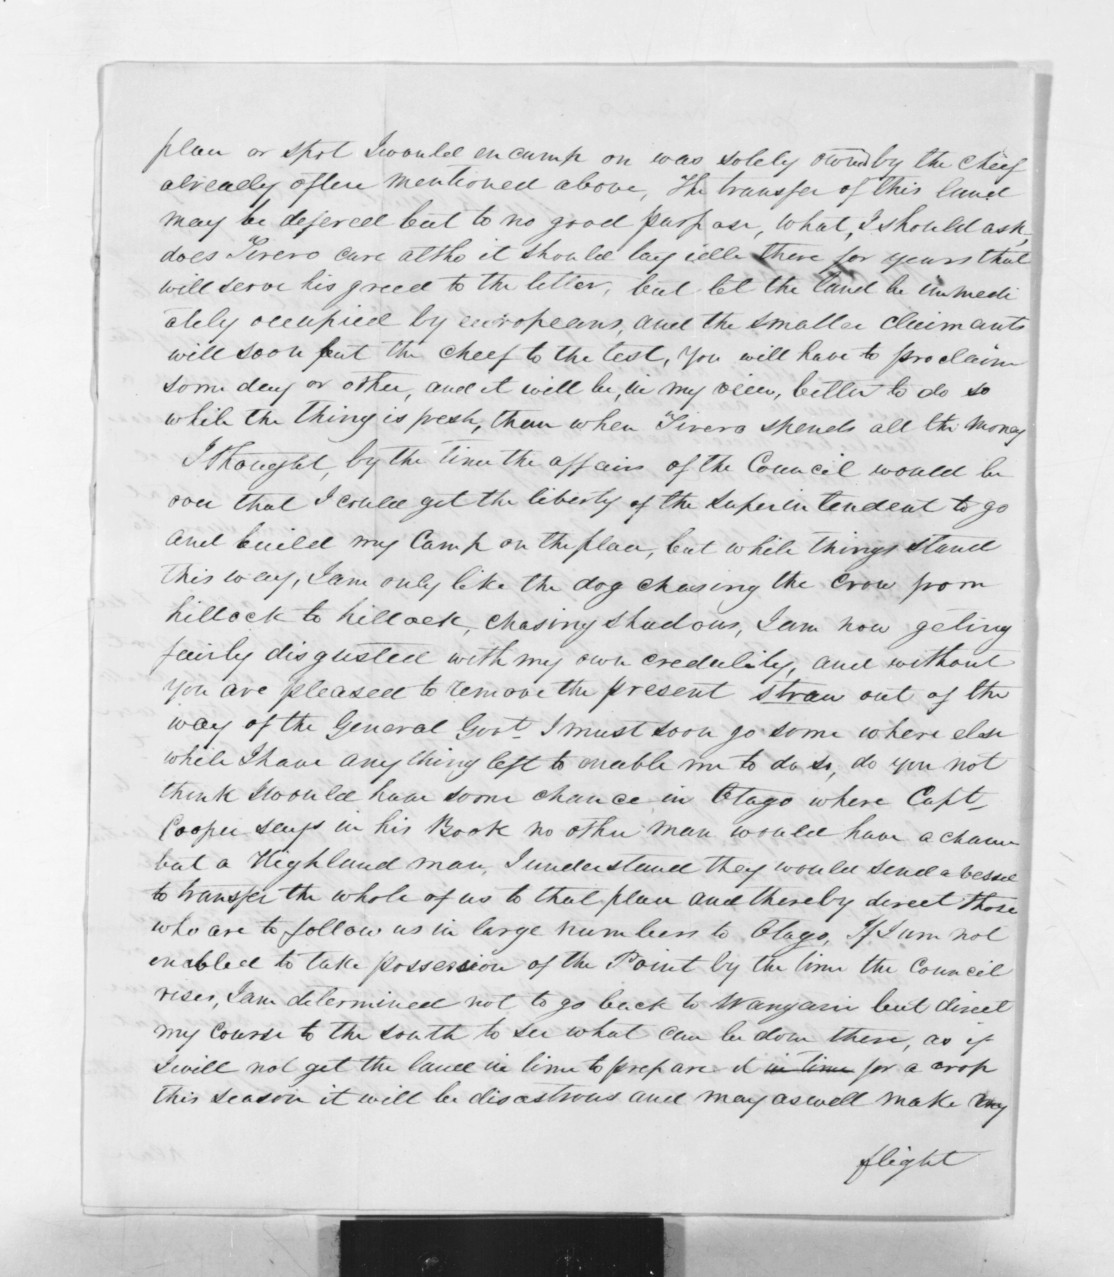 place or spot I would encamp on was solely owned by the cheef
already often mentioned above, The transfer of this land
may be defered but to no good purpose, what, I should ask,
does Tirero care altho it should lay idle there for years that
will serve his greed to the letter, but let the land be immedi
ately occupied by europeans, and the smaller claimants
will soon put the cheef to the test, You will have to proclaim
some day or other, and it will be, in my view, better to do so
while the thing is fresh, than when Tirero spends all the money
I thought, by the time the affairs of the Council would be
over that I could get the liberty of the superintendent to go
and build my Camp on the place, but while things stand
this way, I am only like the dog chasing the crow from
hillock to hillock, chasing shadows, I am now geting
fairly disgusted with my own credulity, and without
you are pleased to remove the present straw out of the
way of the General Govt I must soon go some where else
while I have any thing left to enable me to do so, do you not
think I would have some chance in Otago where Capt
Cooper says in his Book no other man would have a chance
but a Highland man, I understand they would send a vessel
to transfer the whole of us to that place and thereby direct those
who are to follow us in large numbers to Otago, If I am not
enabled to take possession of the Point by the time the Council
rises, I am determined not to go back to Wangarei but direct
my course to the south to see what can be done there, as if
I will not get the land in time to prepare it in time for a crop
this season it will be disastrous and may as well make my
flight